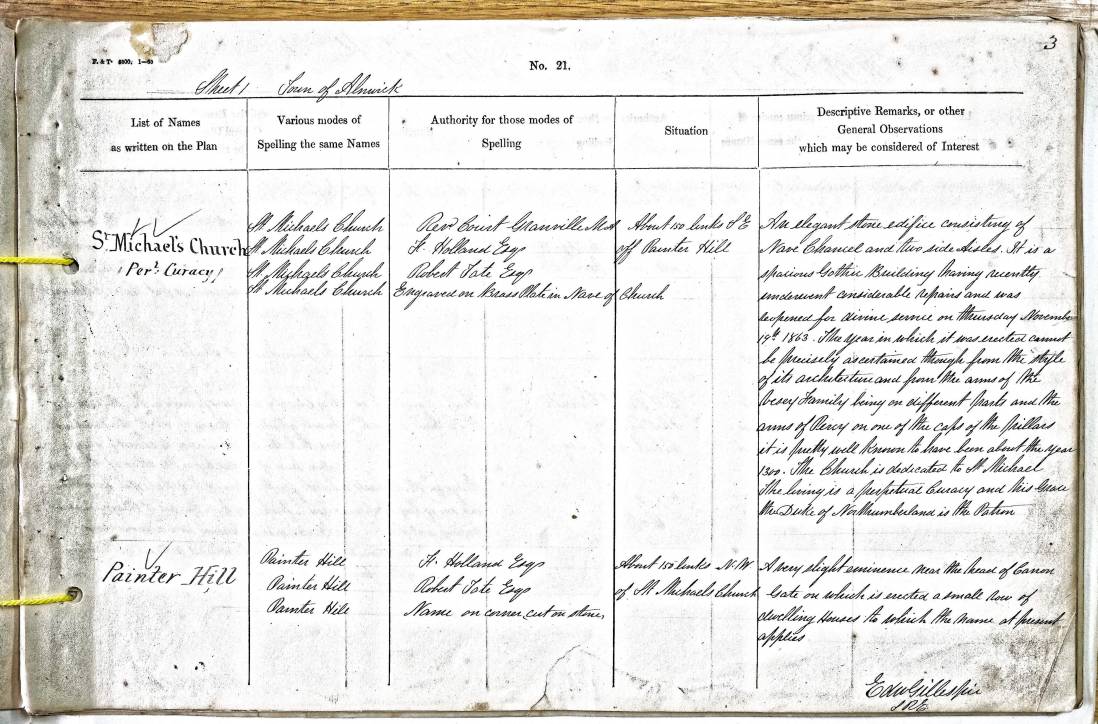 3
F. & T. 4000, 1—60
No. 21.
Sheet 1 Town of Alnwick
List of Names
as written on the Plan
Various modes of
Spelling the same Names
Authority for those modes of
Spelling
Situation
Descriptive Remarks, or other
General Observations
which may be considered of Interest
St. Michael's Church
(Pert. Curacy)
St Michaels Church
St Michaels Church
St Michaels Church
St Michaels Church
Revd Court Granville M.A
F. Holland Esqr
Robert Tate Esqr
Engraved on Brass Plate in Nave of Church
About 150 links S E
off Painter Hill
An elegant stone edifice consisting of
Nave Chancel and two side Aisles. It is a
spacious Gothic Building having recently
underwent considerable repairs and was
reopened for divine service on Thursday November
19th 1863. The year in which it was erected cannot
be precisely ascertained through from the style
of its architecture and from the arms of the
Vesey Family being on different parts and the
arms of Percy on one of the caps of the pillars
it is pretty well known to have been about the year
1300. The Church is dedicated to St Michael
The living is a perpetual Curacy and his Grace
the Duke of Northumberland is the Patron
Painter Hill
Painter Hill
Painter Hill
Painter Hill
F. Holland Esqr
Robert Tate Esqr
Name on corner, cut on stone,
About 150 links N.W
of St Michaels Church
A very slight eminence near the head of Canon
Gate on which is erected a small row of
dwelling Houses to which the name at present
applies
Edw Gillespie
S R E